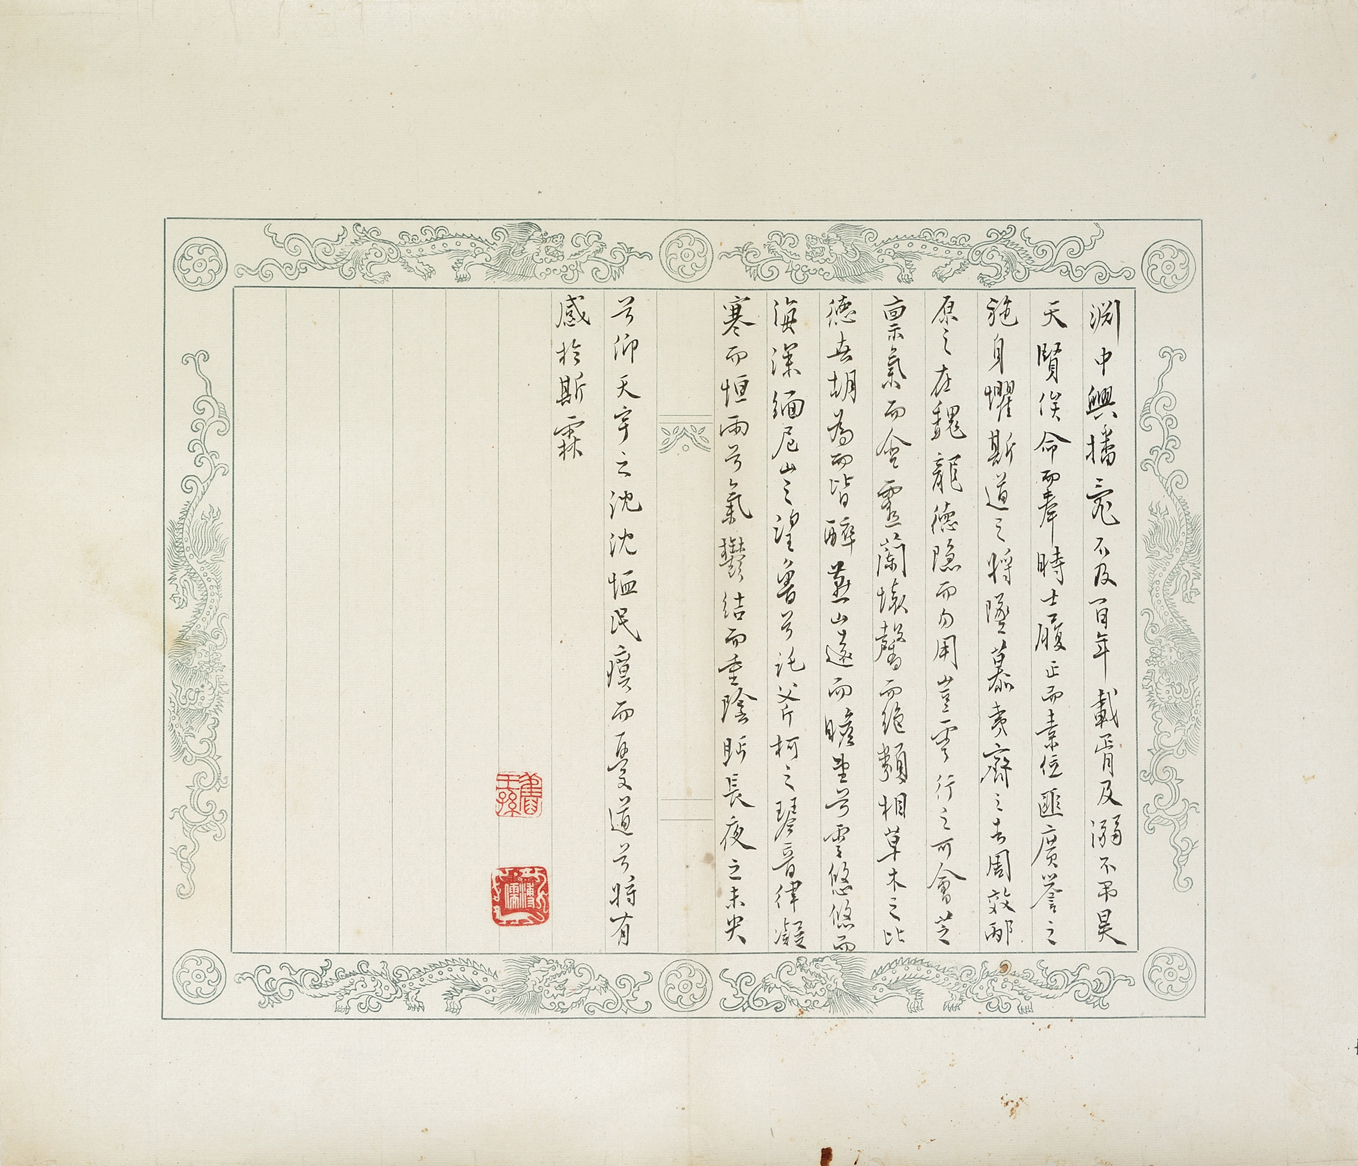 淵中興播毫不及百年載胥及溺不弔昊
天賢俟命而奉時士履正而素位匪廣譽之
施身懼斯道之將墜慕夷齊之去周效邴
原之在魏龍德隱而勿用豈雲行之可會芝
禀氣而含靈蘭懷馨而絶類相草木之比
德兮胡為而皆醉燕山遠而瞻望兮雲悠悠而
海深緬尼山之望魯兮託父斤柯之琴音律凝
寒而恒雨兮氣鬱結而重陰眄長夜之未央
兮仰天宇之沈沈恤民瘼而憂道兮將有
感於斯霖
舊王孫
溥儒